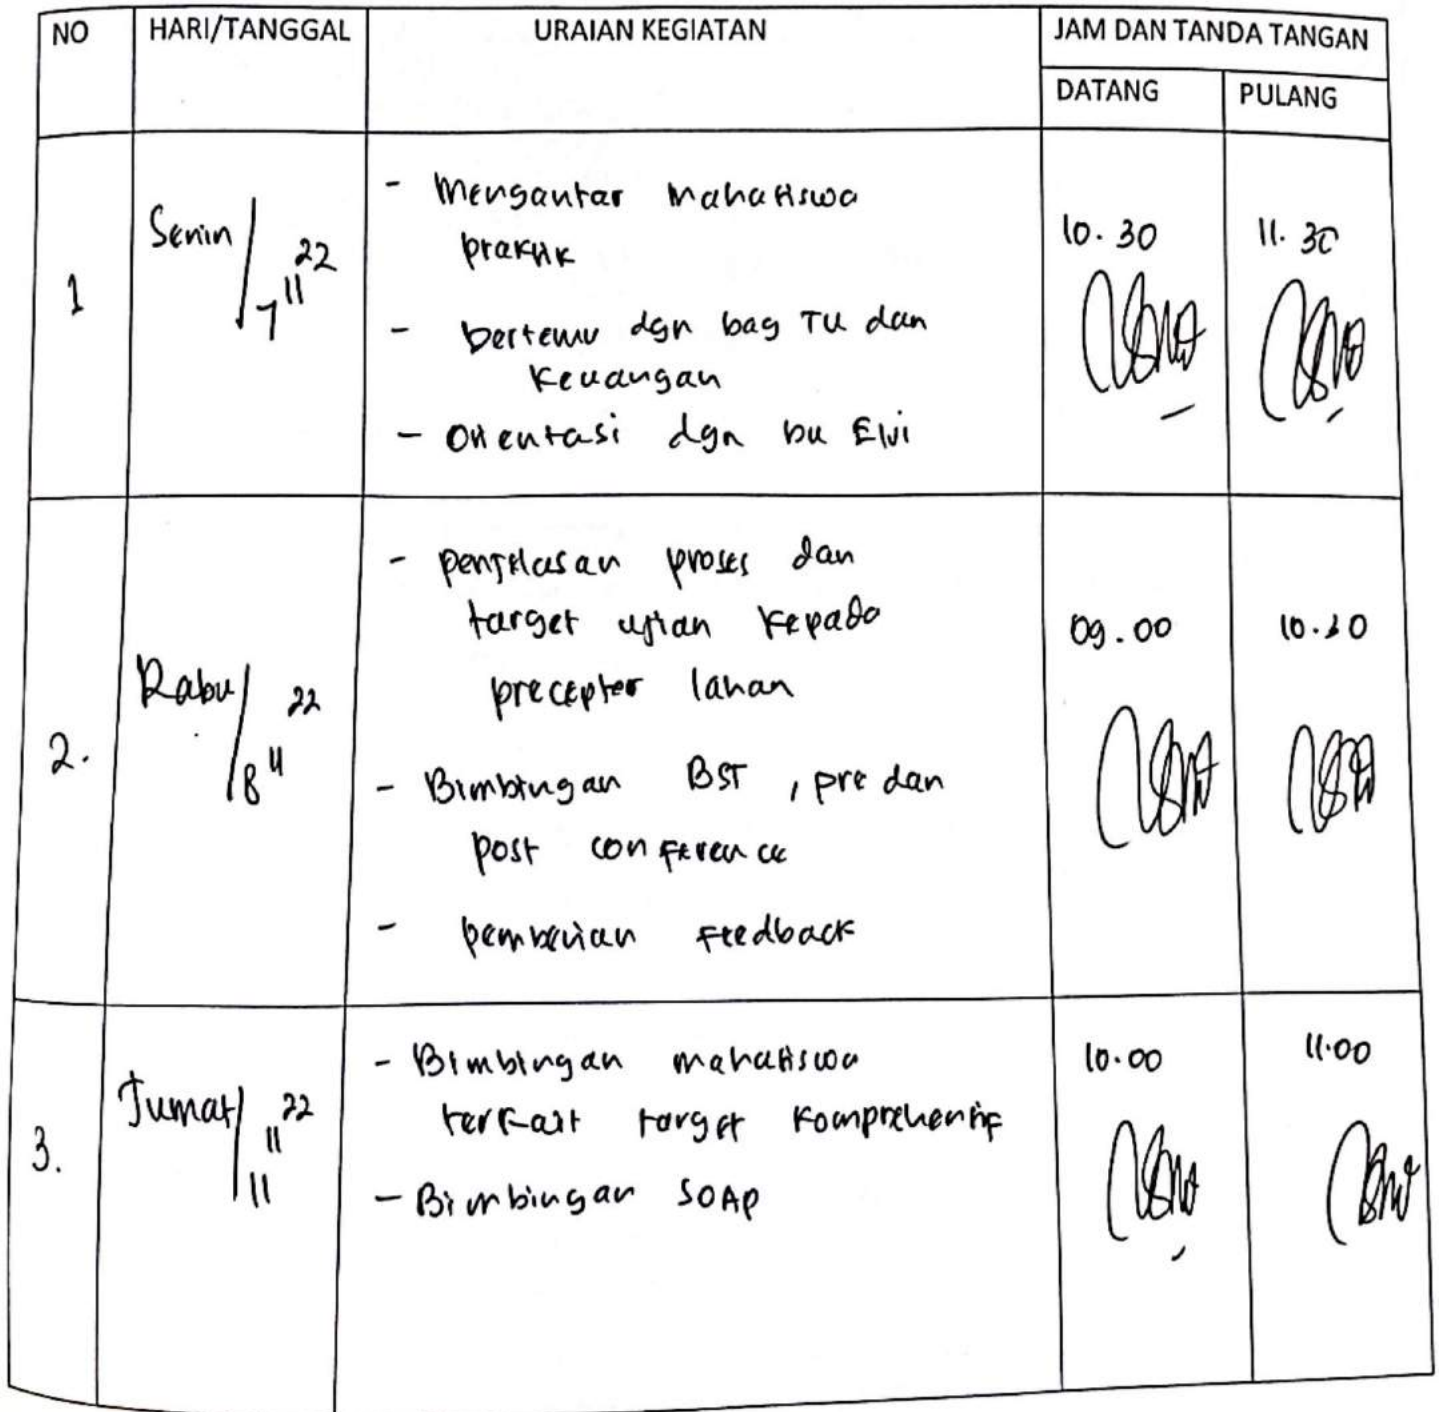 NO HARI/TANGGAL URAIAN KEGIATAN JAM DAN TANDA TANGAN
DATANG PULANG
1 Senin/7 11 22
- Mengantar mahasiswa
praktik
- bertemu dgn bag TU dan
keuangan
- Orientasi dgn bu Elvi
10.30 11.30
2. Rabu/8 11 22
- penjelasan proses dan
target ujian kepada
preceptor lahan
- Bimbingan BST, pre dan
post conference
- pemberian feedback
09.00
3. Jumat/11 11 22
- Bimbingan mahasiswa
terkait target komprehensif
- Bimbingan SOAP
10.00 11.00